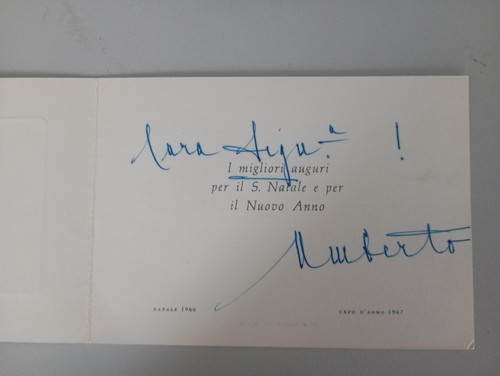 Cara Sig.ª !
I migliori auguri
per il S. Natale e per
il Nuovo Anno
Umberto
NATALE 1966 CAPO D'ANNO 1967